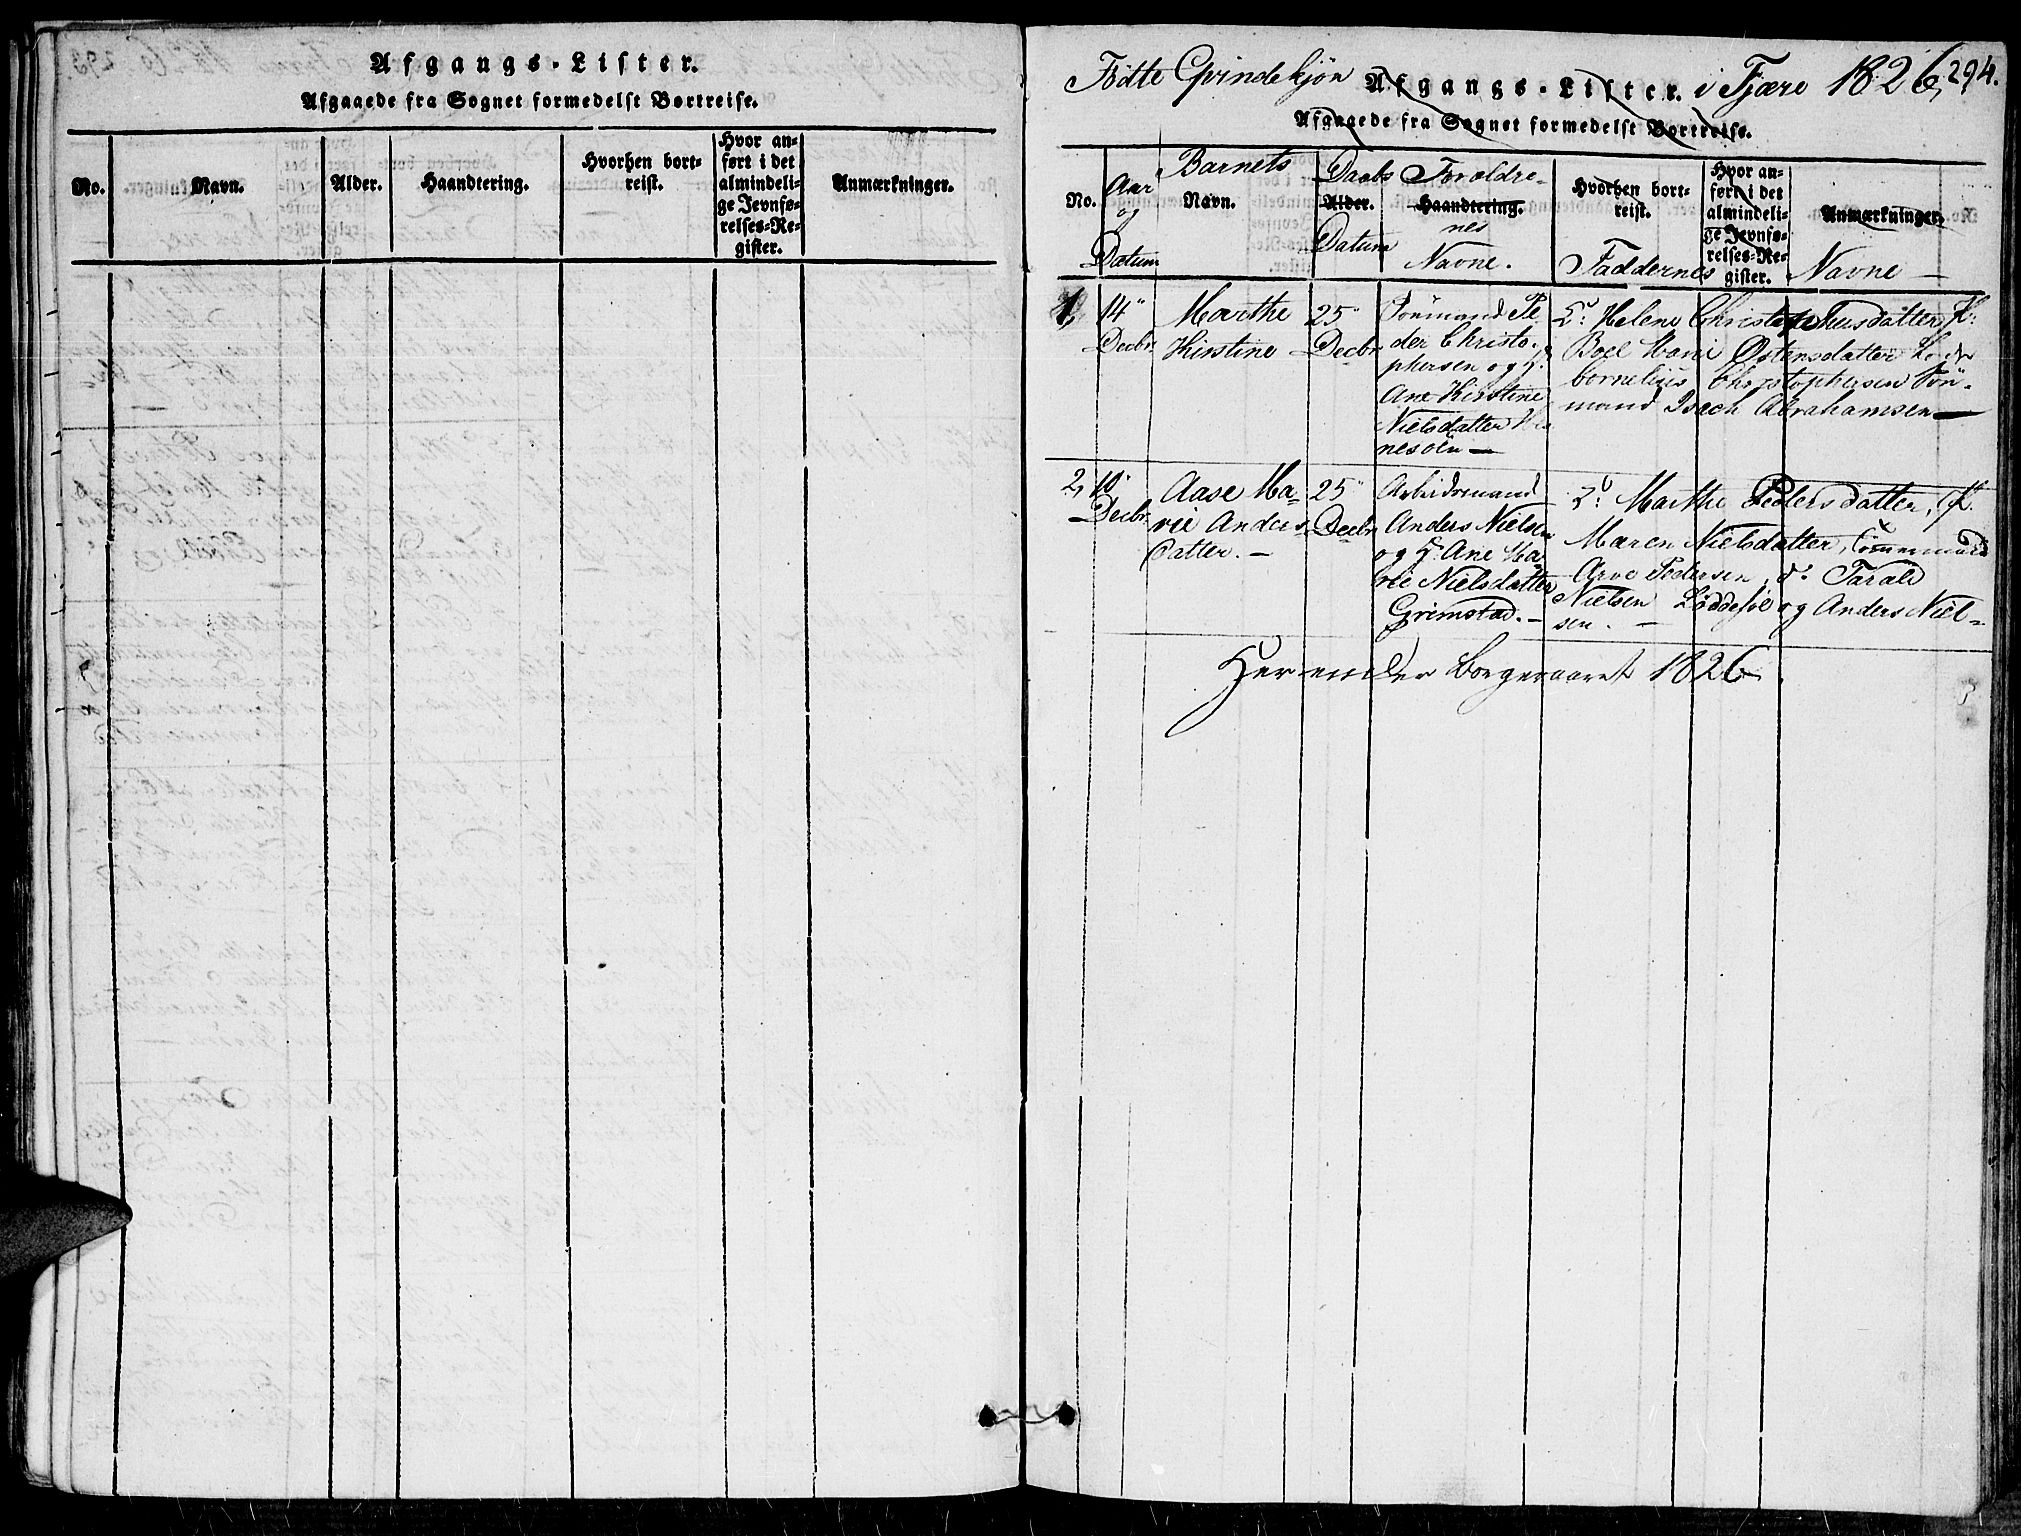 Afgangs-Lister.
Afgaaede fra Sognet formedelst Bortreise.
No.
Navn.
Alder.
Haandtering.
Hvorhen bort-
reist.
Hvor an-
ført i det
almindeli-
ge Jevnfø-
relses-Re-
gister.
Anmærkninger.
Fødte Qvindekjøn
Afgangs-Lister.
i Fjære 1826,
294.
Afgaaede fra Sognet formedelst Bortreise.
No.
Aar
og
Datum
Barnets
Navn.
Daabs
Alder.
Datum
Forældre-
Haandtering.
nes
Navne.
Hvorhen bort-
reist.
Faddernes
Hvor an-
ført i det
almindeli-
ge Jevnfø-
relses-Re-
gister.
Anmærkninger.
Navne
1,
14"
Decbr.
Marthe
Kirstine
25"
Decbr
Sømand Pe
der Christo-
phersen og H.
Ane Kirstine
Nielsdatter
nesöen
Helene Christophersdatter, P:
Boel Mari Østensdatter
Cornelius Christophersen Søn-
mand Isach Abrahamsen
2,
10"
Decbr
Aase Ma-
rie Anders
Datter.
25"
Decbr
Arbeidsmand
Anders Nielsen
og H. Ane Ma
rie Nielsdatter
Grimstad.
Marthe Pedersdatter, P.
Maren Nielsdatter, Tömmermand
Arve Pedersen, do Tarald
Nielsen Löddesöl og Anders Niel-
sen.
Her ender Borgeraaret 1826